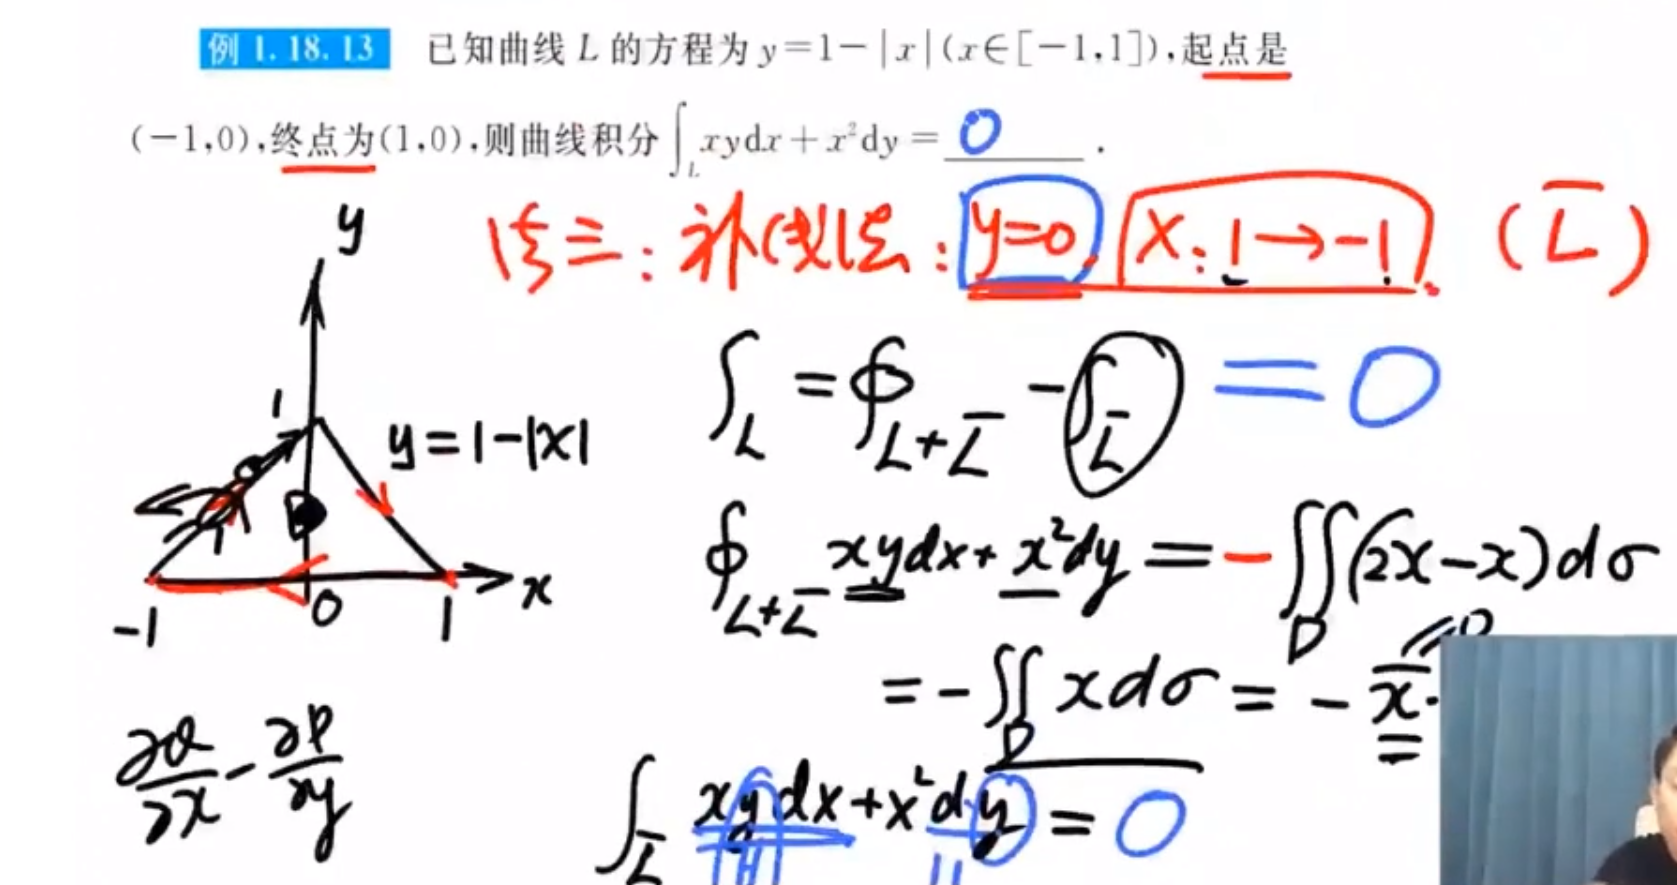 例 1.18.13 已知曲线 L 的方程为 y=1-|x|(x∈[-1,1]),起点是
(-1,0),终点为(1,0),则曲线积分∫_L xydx+x²dy= 0 .
法三:补线法:y=0, x:1→-1. (L̄)
y
∫_L = ∮_{L+L̄} - ∫_{L̄} = 0
1
y=1-|x|
D
∮_{L+L̄} xydx+x²dy = -∬_D (2x-x)dσ
-1 0 1 x
= -∬_D xdσ = -x̄·
∂Q/∂x - ∂P/∂y
∫_{L̄} xydx+x²dy = 0